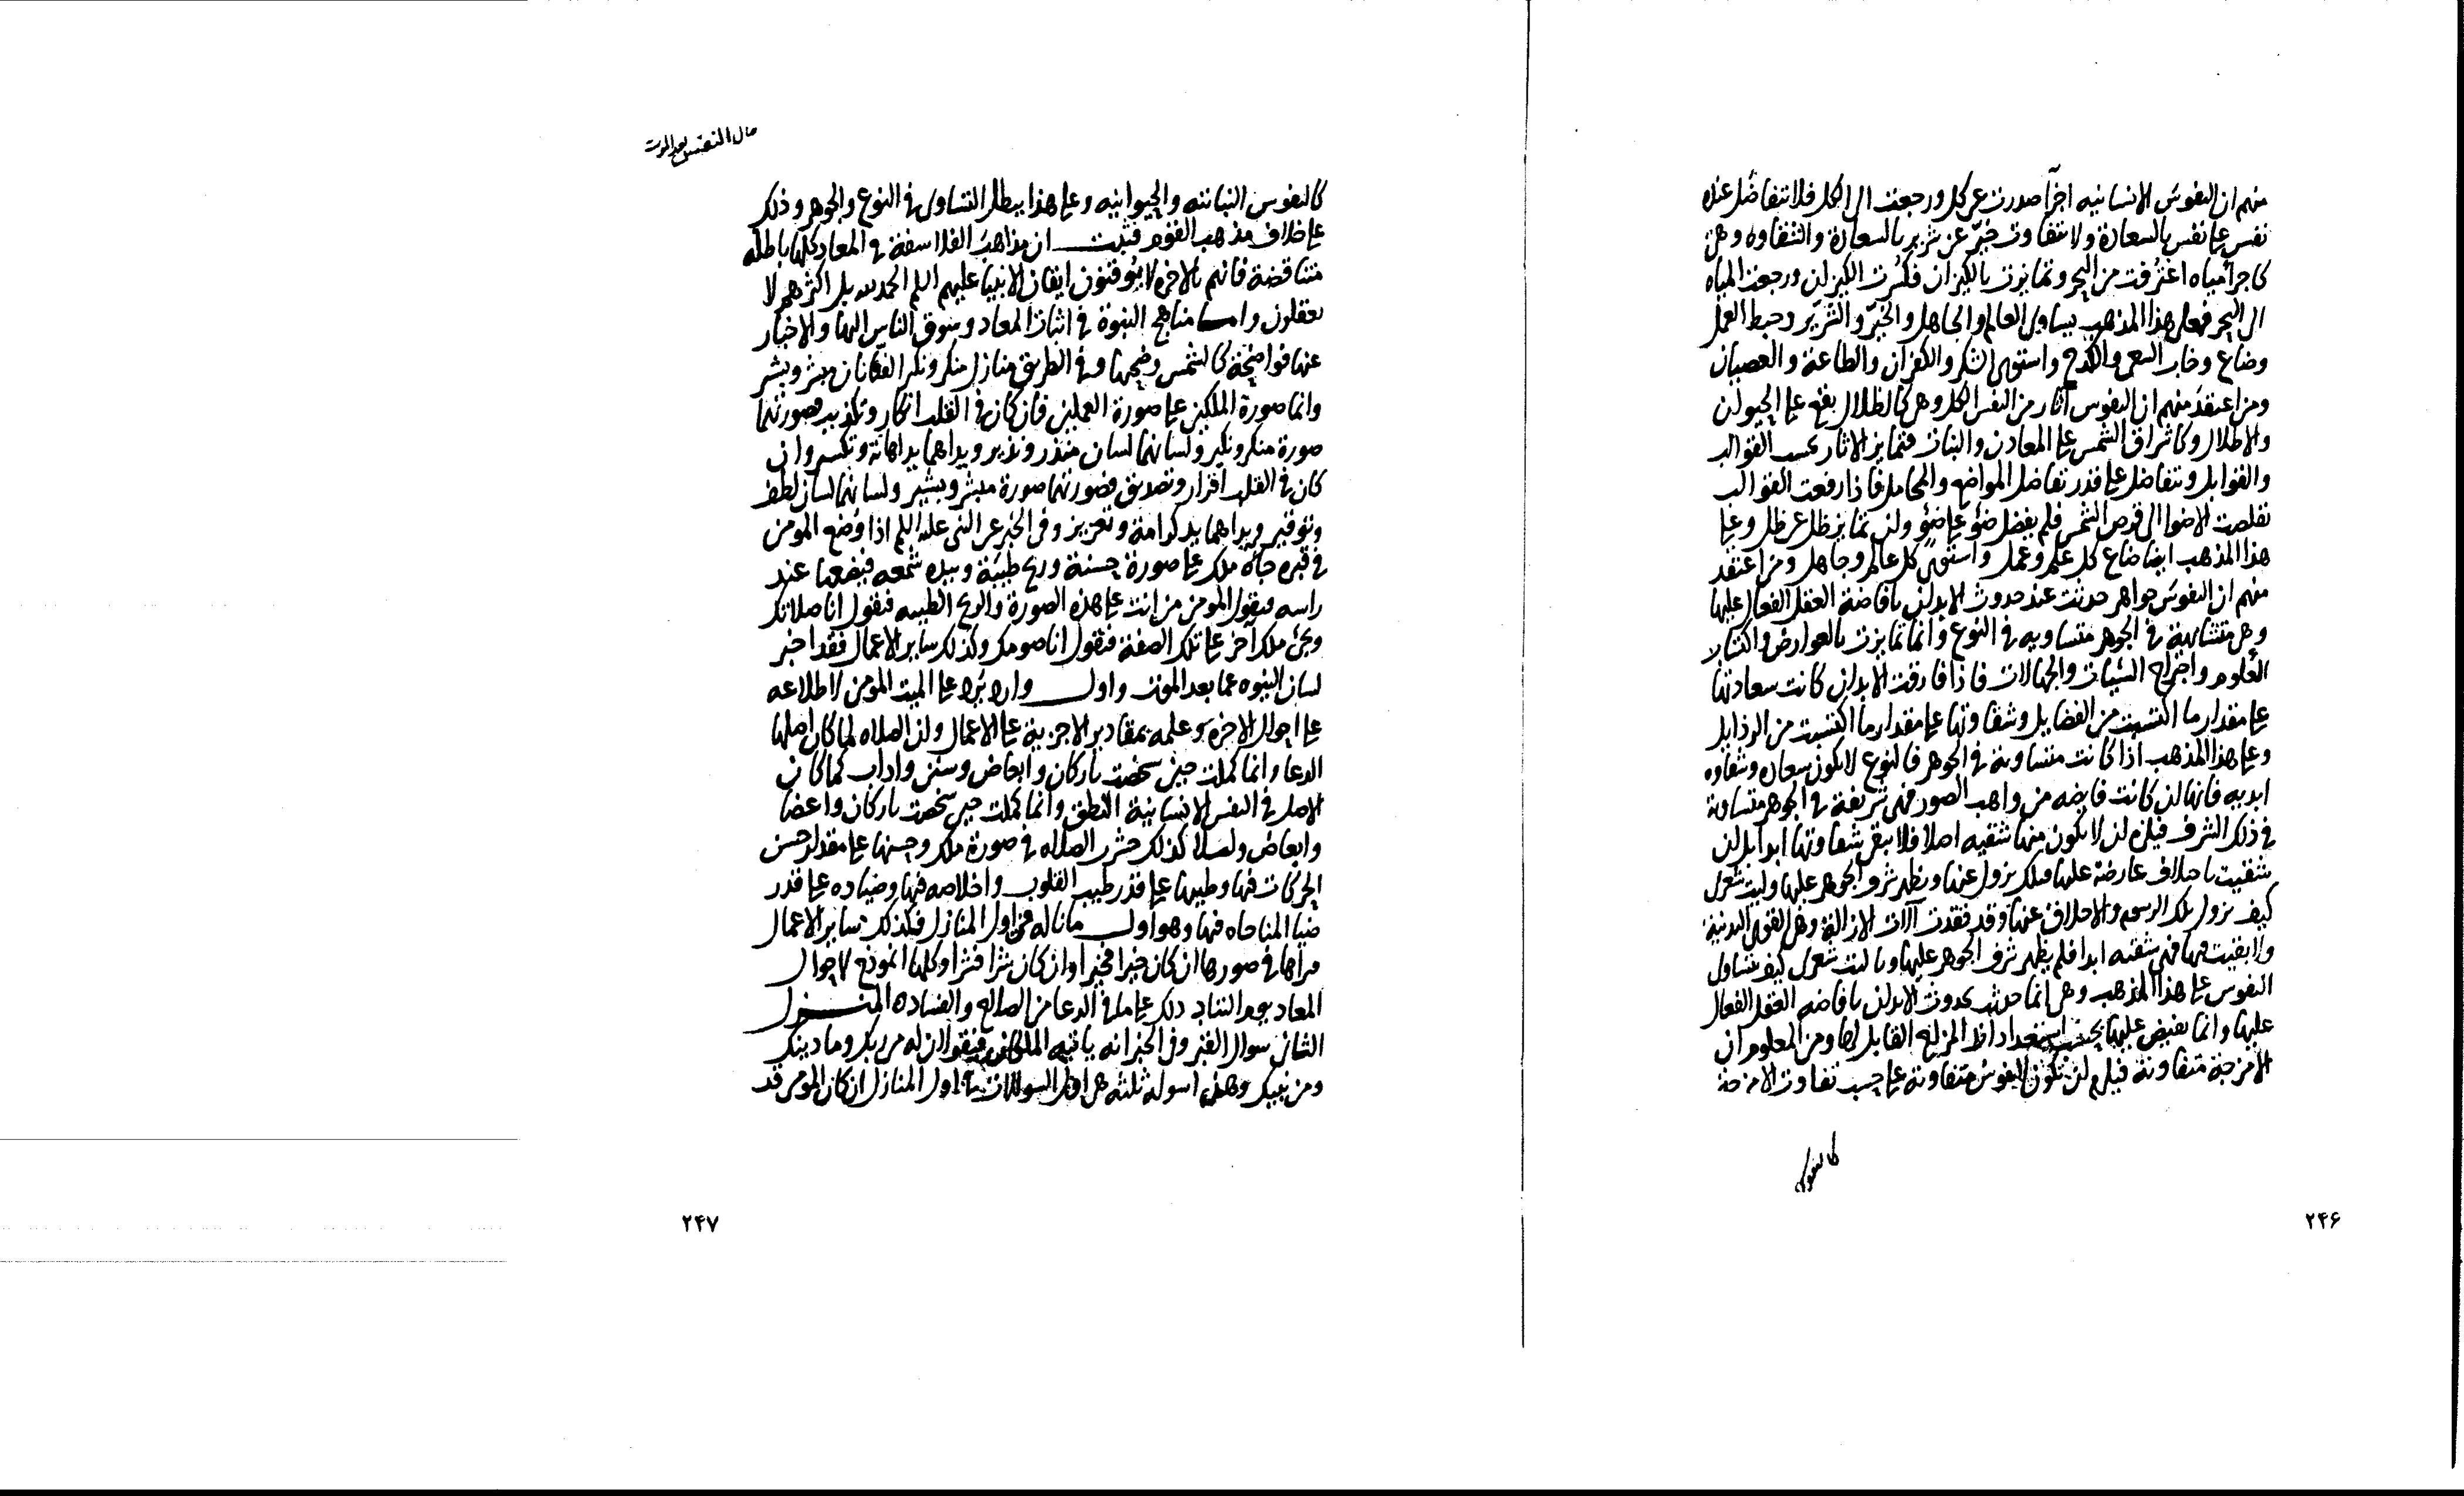 منهم ان النفوس الانسانيه اجزآ صدرت عن كل ورجعت الى الكل فلا تتفاضل عنده
نفس على نفس بالسعادة ولا تتفاوت خيّر عن شرير بالسعادة والشقاوه وهى
كاجزآ مياه اغترفت من البحر وتمايزت بالكيزان فكسرت الكيزان ورجعت المياه
الى البحر فعلى هذا المذهب يساوى العالم والجاهل والخيّر والشرّير وحبط العمل
وضاع وخاب السعى والكدح واستوى الشكر والكفران والطاعة والعصيان
ومن اعتقد منهم ان النفوس آثار من النفس الكل وهى كالظلال يقع على الحيوان
والاطلال وكاشراق الشمس على المعادن والنبات فتمايز الاثار بحسب القوالب
والقوابل وتتفاضل على قدر تفاضل المواضع والمحامل فاذا رفعت القوالب
تقلصت الاضوا الى قرص الشمس فلم يفضل ضوٌ على ضوٍ ولن تمايز ظل عن ظل وعلى
هذا المذهب ايضا ضاع كل علم وعمل واستوى كل عالم وجاهل ومن اعتقد
منهم ان النفوس جواهر حدثت عند حدوث الابدان بافاضة العقل الفعال عليها
وهى متشابهة فى الجوهر متساويه فى النوع وانما تمايزت بالعوارض واكتساب
العلوم واجتراح السّيّات والجهالات فاذا فارقت الابدان كانت سعادتها
على مقدار ما اكتسبت من الفضايل وشقاوتها على مقدار ما اكتسبت من الرذايل
وعلى هذا المذهب اذا كانت متساوية فى الجوهر فالنوع لا تكون سعاده وشقاوه
ابديه فانها لن كانت فايضه من واهب الصور فهى شريفة فى الجوهر متساوية
فى ذلك الشرف فيلزم لن لا يكون منها شقيه اصلا فلا يبقى شقاوتها ابدا بل لن
شقيت باخلاف عارضة عليها فتلك يزول عنها ويظهر شرف الجوهر عليها وليت شعرى
كيف يزول تلك الرسوم والاخلاق عنها وقد فقدت آلات الازالة وهى القوى البدنية
وان بقيت فيها فهى شقيه ابدا فلم يظهر شرف الجوهر عليها ويا ليت شعرى كيف يتساوى
النفوس على هذا المذهب وهى انما حدثت بحدوث الابدان بافاضه العقل الفعال
عليها وانما يفيض عليها بحسب استعداد المزاج القابل لها ومن المعلوم ان
الامزجة متفاوتة فيلزم لن تكون النفوس متفاوتة على حسب تفاوت الامزجة
كالنفوس
۲۴۶
حال النفس بعد الموت
كالنفوس النباتيه والحيوانيه وعلى هذا يبطل التساوى فى النوع والجوهر وذلك
على خلاف مذهب القوم فثبت ان مذاهب الفلاسفة فى المعاد كلها باطله
متناقضة فانهم بالاخره لا يوقنون ايقان الانبيا عليهم السلم الحمد لله بل اكثرهم لا
يعقلون واما مناهج النبوة فى اثبات المعاد وسوق الناس اليها والاخبار
عنها فواضحة كالشمس وضحيها وفى الطريق منازل منكر ونكير الفتانان مبشر وبشير
وانما صورة الملكين على صورة العملين فان كان فى القلب انكار وتكذيب فصورتهما
صورة منكر ونكير ولسانهما لسان منذر ونذير ويداهما يد اهانة وتكسير وان
كان فى القلب اقرار وتصديق فصورتهما صورة مبشر وبشير ولسانهما لسان لطف
وتوقير ويداهما يد كرامة وتعزيز وفى الخبر عن النبى عليه السلم اذا وُضع المومن
فى قبره جآه ملك على صورة حسنة وريح طيبة وبيده شمعه فيضعها عند
راسه فيقول المومن من انت على هذه الصورة والريح الطيبه فيقول انا صلاتك
ويجئ ملك آخر على تلك الصفة فيقول انا صومك وكذلك ساير الاعمال فقد اخبر
لسان النبوه عما بعد الموت واول وارد يرد على الميت المومن لاطلاعه
على احوال الاخره وعلمه بمقادير الاجزية على الاعمال ولن الصلاه لما كان اصلها
الدعا وانما كملت حين تشخصت باركان وابعاض وسنن واداب كما كان
الاصل فى النفس الانسانية النطق وانما كملت حين تشخصت باركان واعضا
وابعاض كذلك حشر الصلاه فى صورة ملك وحسنها على مقدار حسن
الحركات فيها وطيبها على قدر طيب القلوب واخلاصه فيها وضياه على قدر
ضيا المناجاه فيها وهو اول ما ناله من اول المنازل فكذلك ساير الاعمال
يراها فى صورها ان كان خيرا فخيرا وان كان شرا فشرا وكلها انموذج لاحوال
المعاد يوم التناد ذلك على ما فى الدعا من الصلاح والفساد المنـزل
الثانى سوال القبر وفى الخبر انه ياتيه الملكان فيقولان له من ربك وما دينك
ومن نبيك وهذه اسوله ثلثه هى اول السوالات اول المنازل ان كان المومن قد
۲۴۷